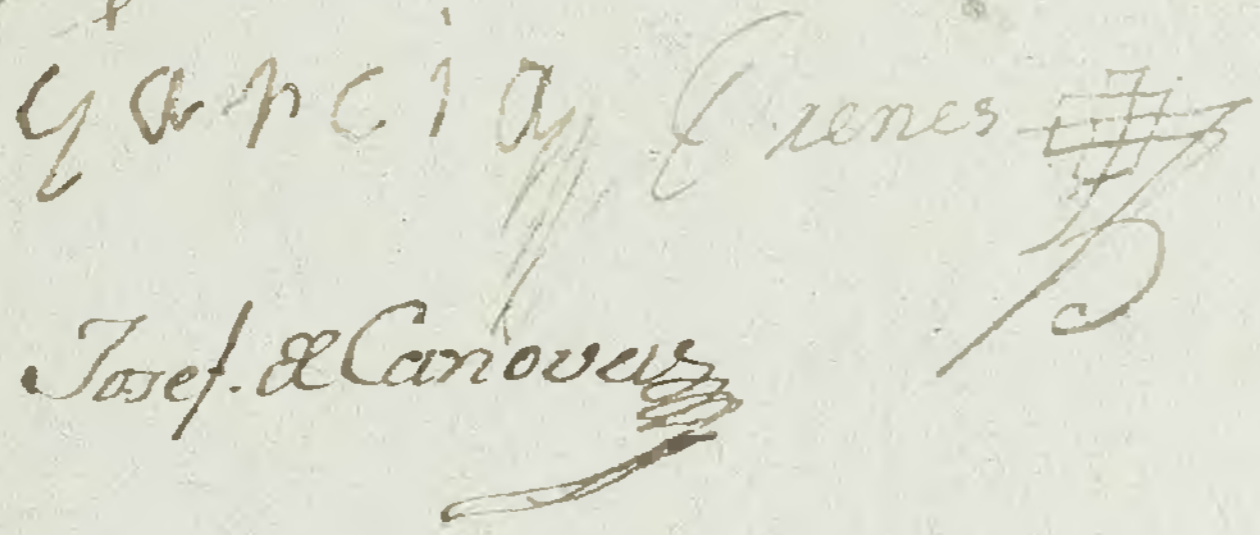 garcia Crenes
Josef. de Canovas